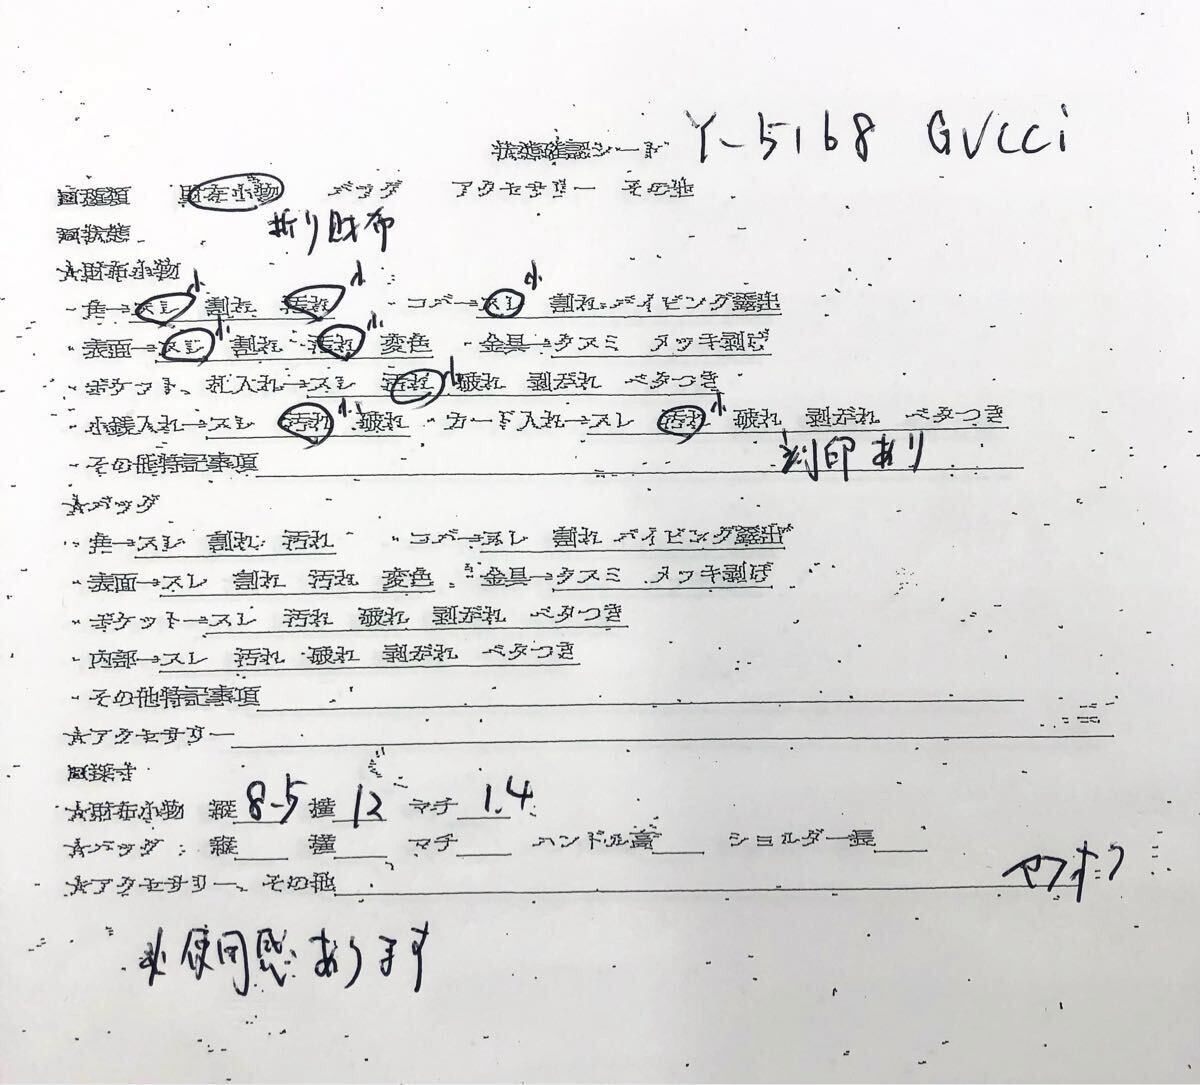 状態確認シート Y-5168 GUCCi
回種類 財布小物 バッグ アクセサリー その他
回状態 折り財布
☆財布小物
・角→スレ小 割れ 汚れ小 ・コバ→スレ小 割れ パイピング露出
・表面→スレ小 割れ 汚れ小 変色 ・金具→クスミ メッキ剥げ
・ポケット、札入れ→スレ 汚れ小 破れ 剥がれ ベタつき
・小銭入れ→スレ 汚れ小 破れ ・カード入れ→スレ 汚れ小 破れ 剥がれ ベタつき
・その他特記事項 刻印あり
☆バッグ
・角→スレ 割れ 汚れ ・コバ→スレ 割れ パイピング露出
・表面→スレ 割れ 汚れ 変色 ・金具→クスミ メッキ剥げ
・ポケット→スレ 汚れ 破れ 剥がれ ベタつき
・内部→スレ 汚れ 破れ 剥がれ ベタつき
・その他特記事項
☆アクセサリー
回採寸
☆財布小物 縦 8.5 横 12 マチ 1.4
☆バッグ 縦 横 マチ ハンドル高 ショルダー長
☆アクセサリー、その他 ヤフオク
※使用感あります